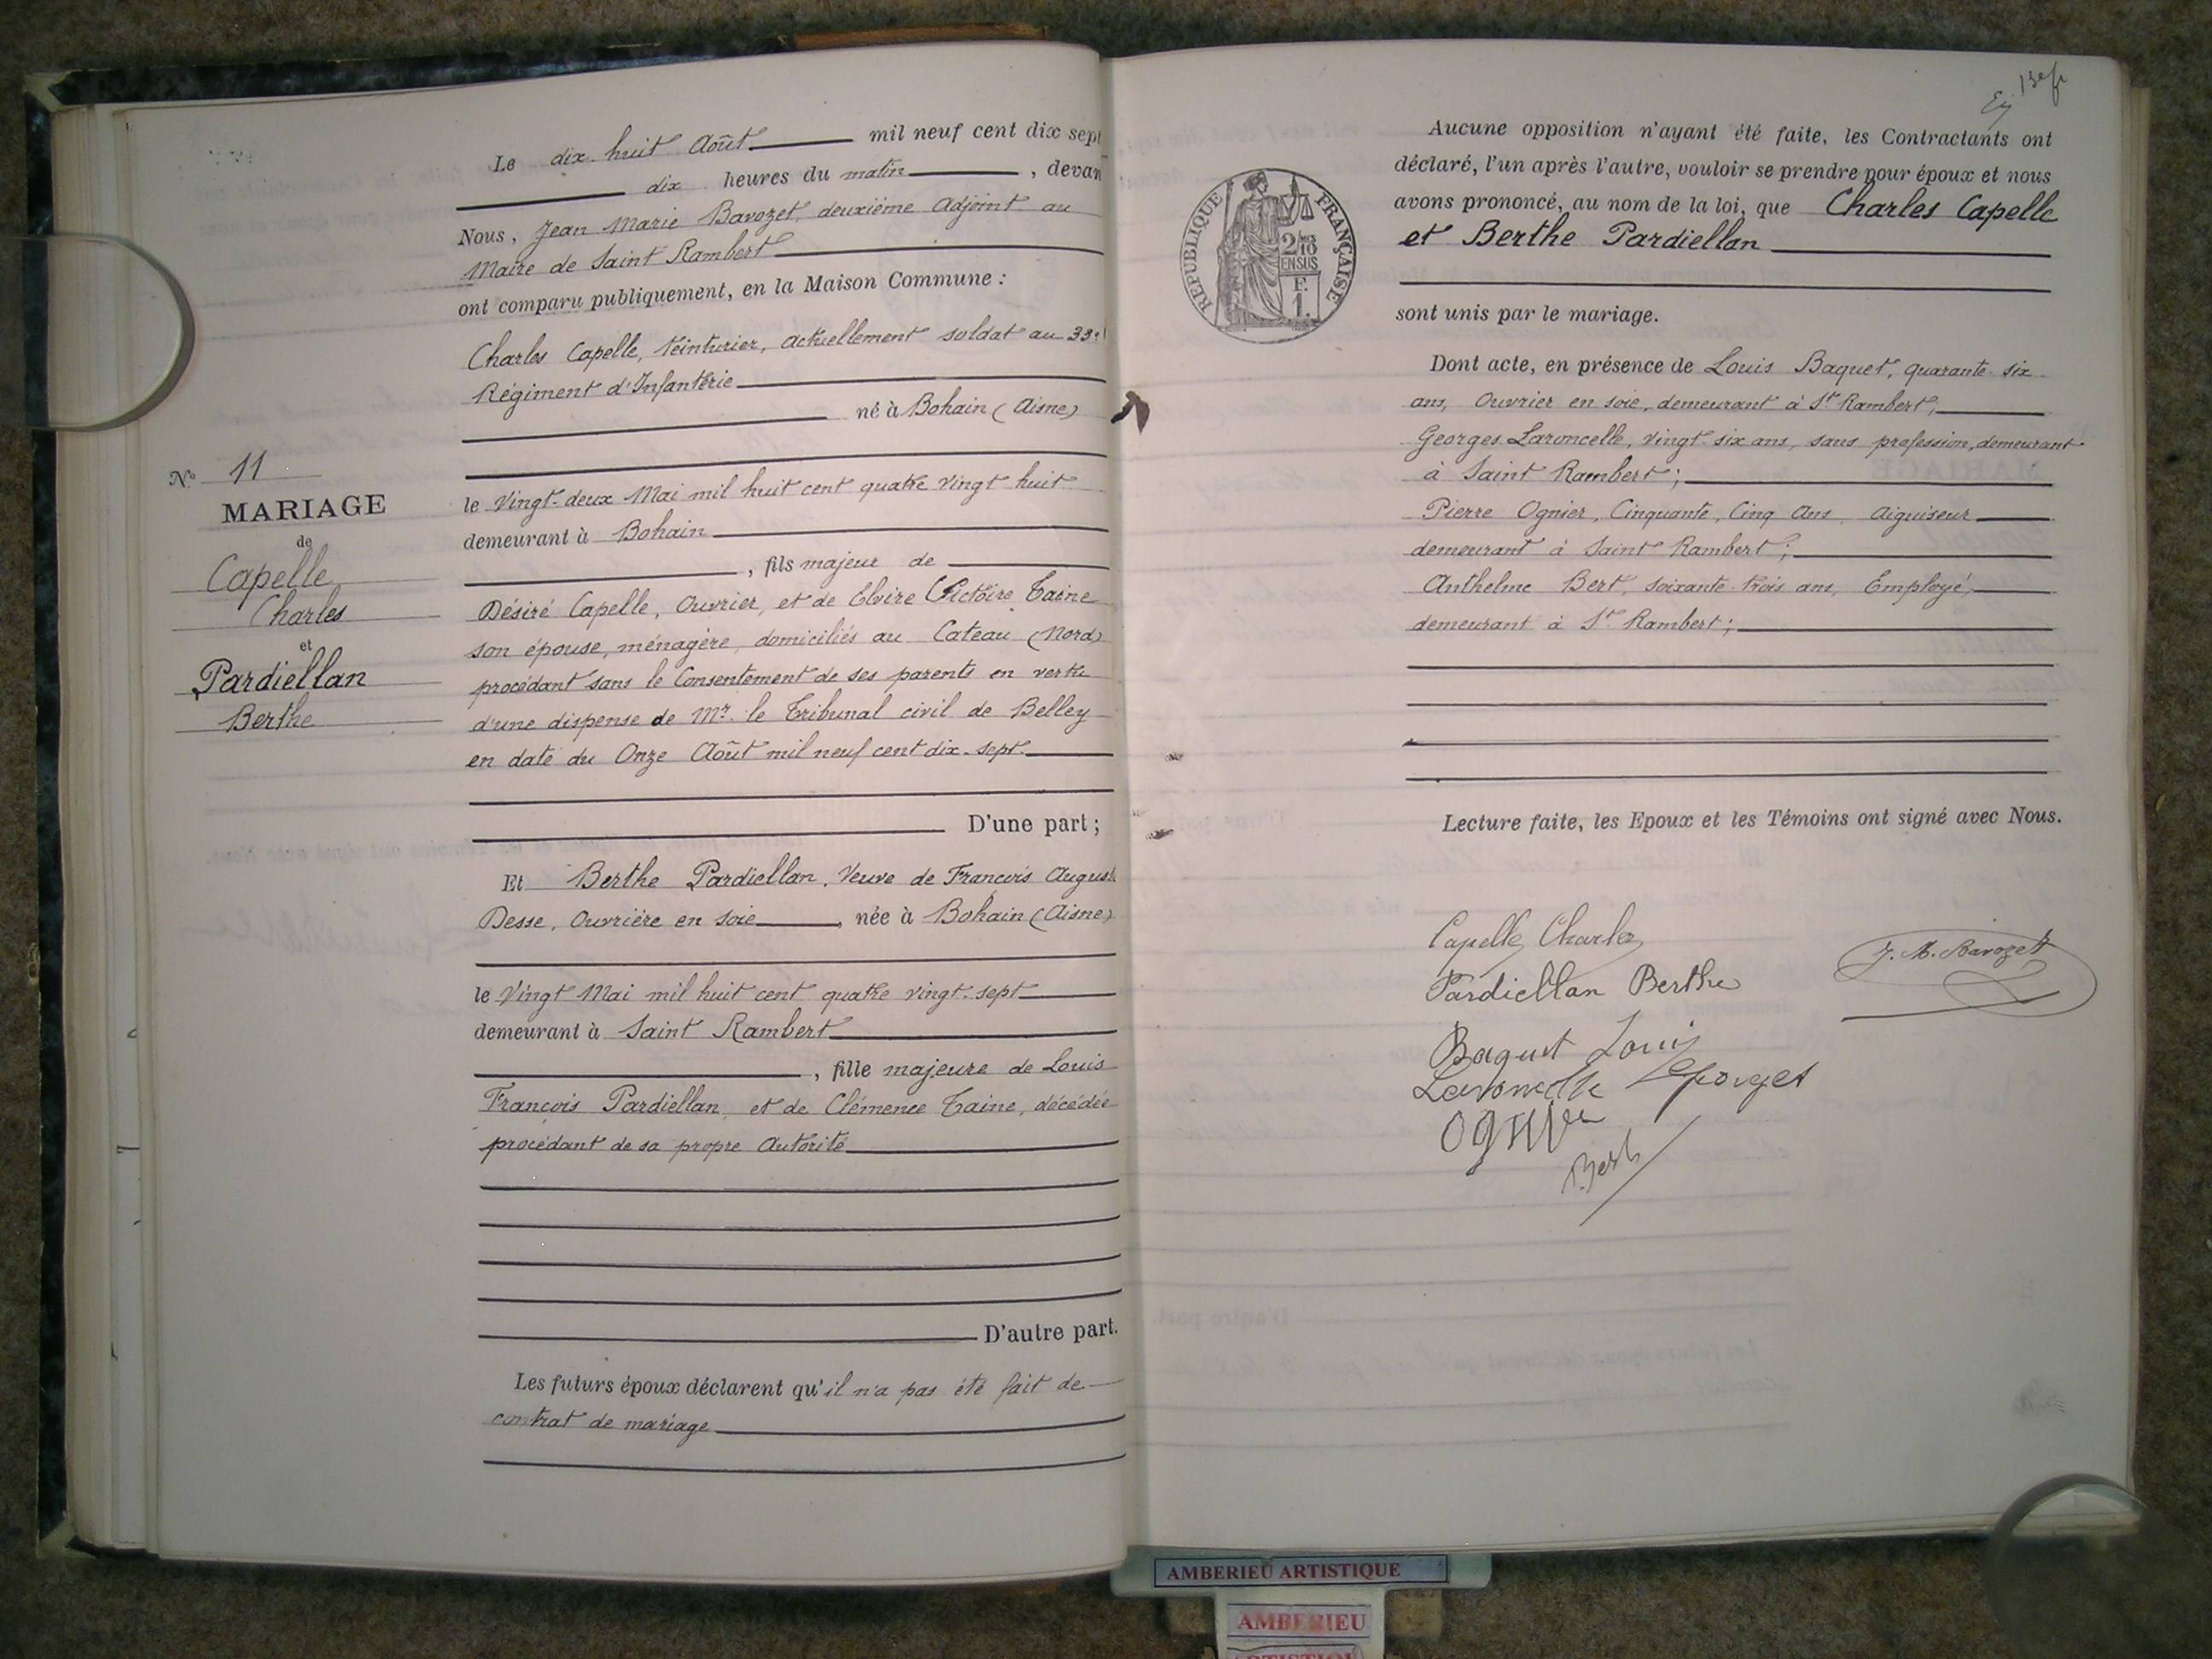 N° 11
MARIAGE
de
Capelle
Charles
et
Pardiellan
Berthe
Le dix huit Août mil neuf cent dix sept
dix heures du matin, devan
Nous, Jean Marie Bavozet, deuxième Adjoint au
Maire de Saint Rambert
ont comparu publiquement, en la Maison Commune :
Charles Capelle, teinturier, actuellement soldat au 33e
Régiment d'Infanterie
né à Bohain (Aisne)
le Vingt-deux Mai mil huit cent quatre vingt huit
demeurant à Bohain
, fils majeur de
Désiré Capelle, Ouvrier, et de Elvire Victoire Taine
son épouse, ménagère, domiciliés au Cateau (Nord)
procédant sans le Consentement de ses parents en vertu
d'une dispense de Mr. le Tribunal civil de Belley
en date du Onze Août mil neuf cent dix-sept.
D'une part ;
Et Berthe Pardiellan, Veuve de François August
Desse, Ouvrière en soie, née à Bohain (Aisne)
le Vingt Mai mil huit cent quatre vingt-sept
demeurant à Saint Rambert
, fille majeure de Louis
François Pardiellan, et de Clémence Taine, décédée
procédant de sa propre Autorité
D'autre part.
Les futurs époux déclarent qu'il n'a pas été fait de
contrat de mariage
13e f
Aucune opposition n'ayant été faite, les Contractants ont
déclaré, l'un après l'autre, vouloir se prendre pour époux et nous
avons prononcé, au nom de la loi, que Charles Capelle
et Berthe Pardiellan
sont unis par le mariage.
RÉPUBLIQUE FRANÇAISE
2/10
EN SUS
F.
1.
Dont acte, en présence de Louis Baquet, quarante six
ans, Ouvrier en soie, demeurant à St Rambert,
Georges Laroncelle, vingt-six ans, sans profession, demeurant
à Saint Rambert ;
Pierre Ognier, Cinquante, Cinq Ans, Aiguiseur
demeurant à Saint Rambert ;
Anthelme Bert, soixante-trois ans, Employé,
demeurant à St Rambert ;
Lecture faite, les Epoux et les Témoins ont signé avec Nous.
Capelle Charles
J. M. Bavozet
Pardiellan Berthe
Baquet Louis
Laroncelle Georges
Ognier
Bert
AMBERIEU ARTISTIQUE
AMBERIEU
ARTISTIQU